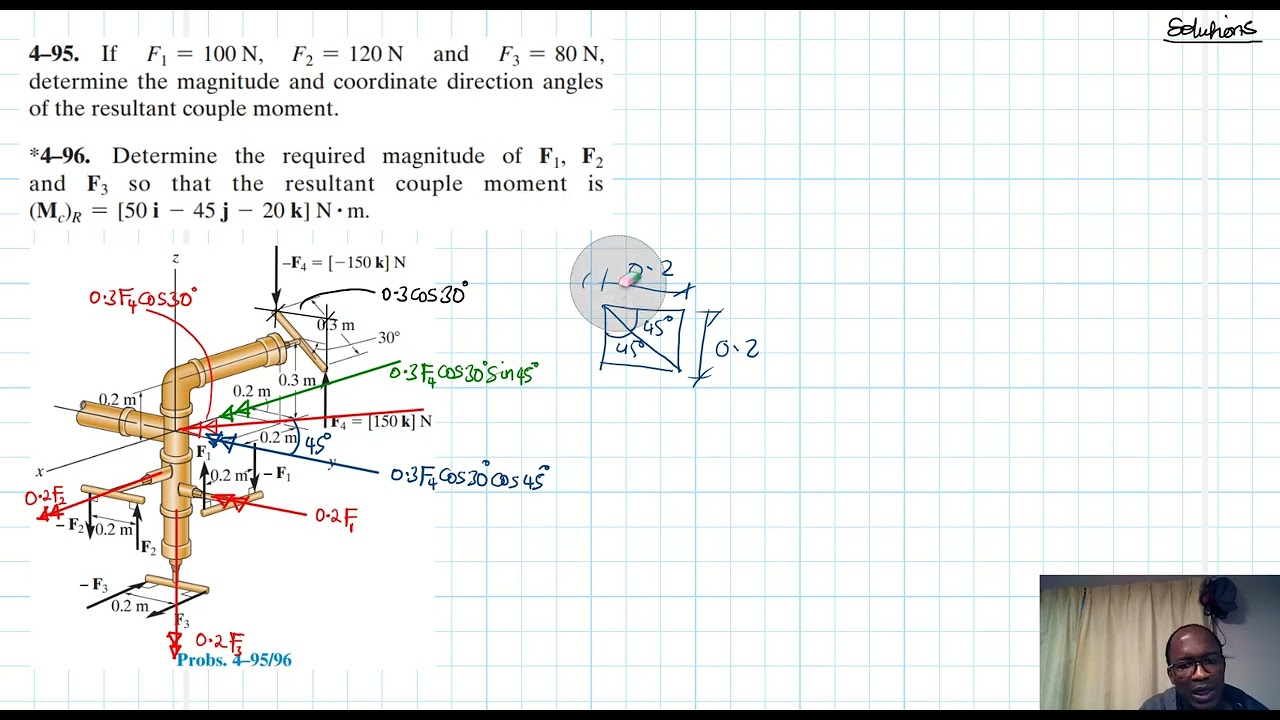 Solutions
4–95. If F₁ = 100 N, F₂ = 120 N and F₃ = 80 N,
determine the magnitude and coordinate direction angles
of the resultant couple moment.
*4–96. Determine the required magnitude of F₁, F₂
and F₃ so that the resultant couple moment is
(M_c)_R = [50 i − 45 j − 20 k] N · m.
z
−F₄ = [−150 k] N
0.3F₄cos30°
0.3cos30°
0.3 m
30°
0.2
45°
45°
0.2
0.3 m
0.3F₄cos30°sin45°
0.2 m
0.2 m
F₄ = [150 k] N
0.2 m
45°
x
y
F₁
0.2 m
− F₁
0.3F₄cos30°cos45°
0.2F₂
− F₂
0.2 m
F₂
0.2F₁
− F₃
0.2 m
F₃
0.2F₃
Probs. 4–95/96